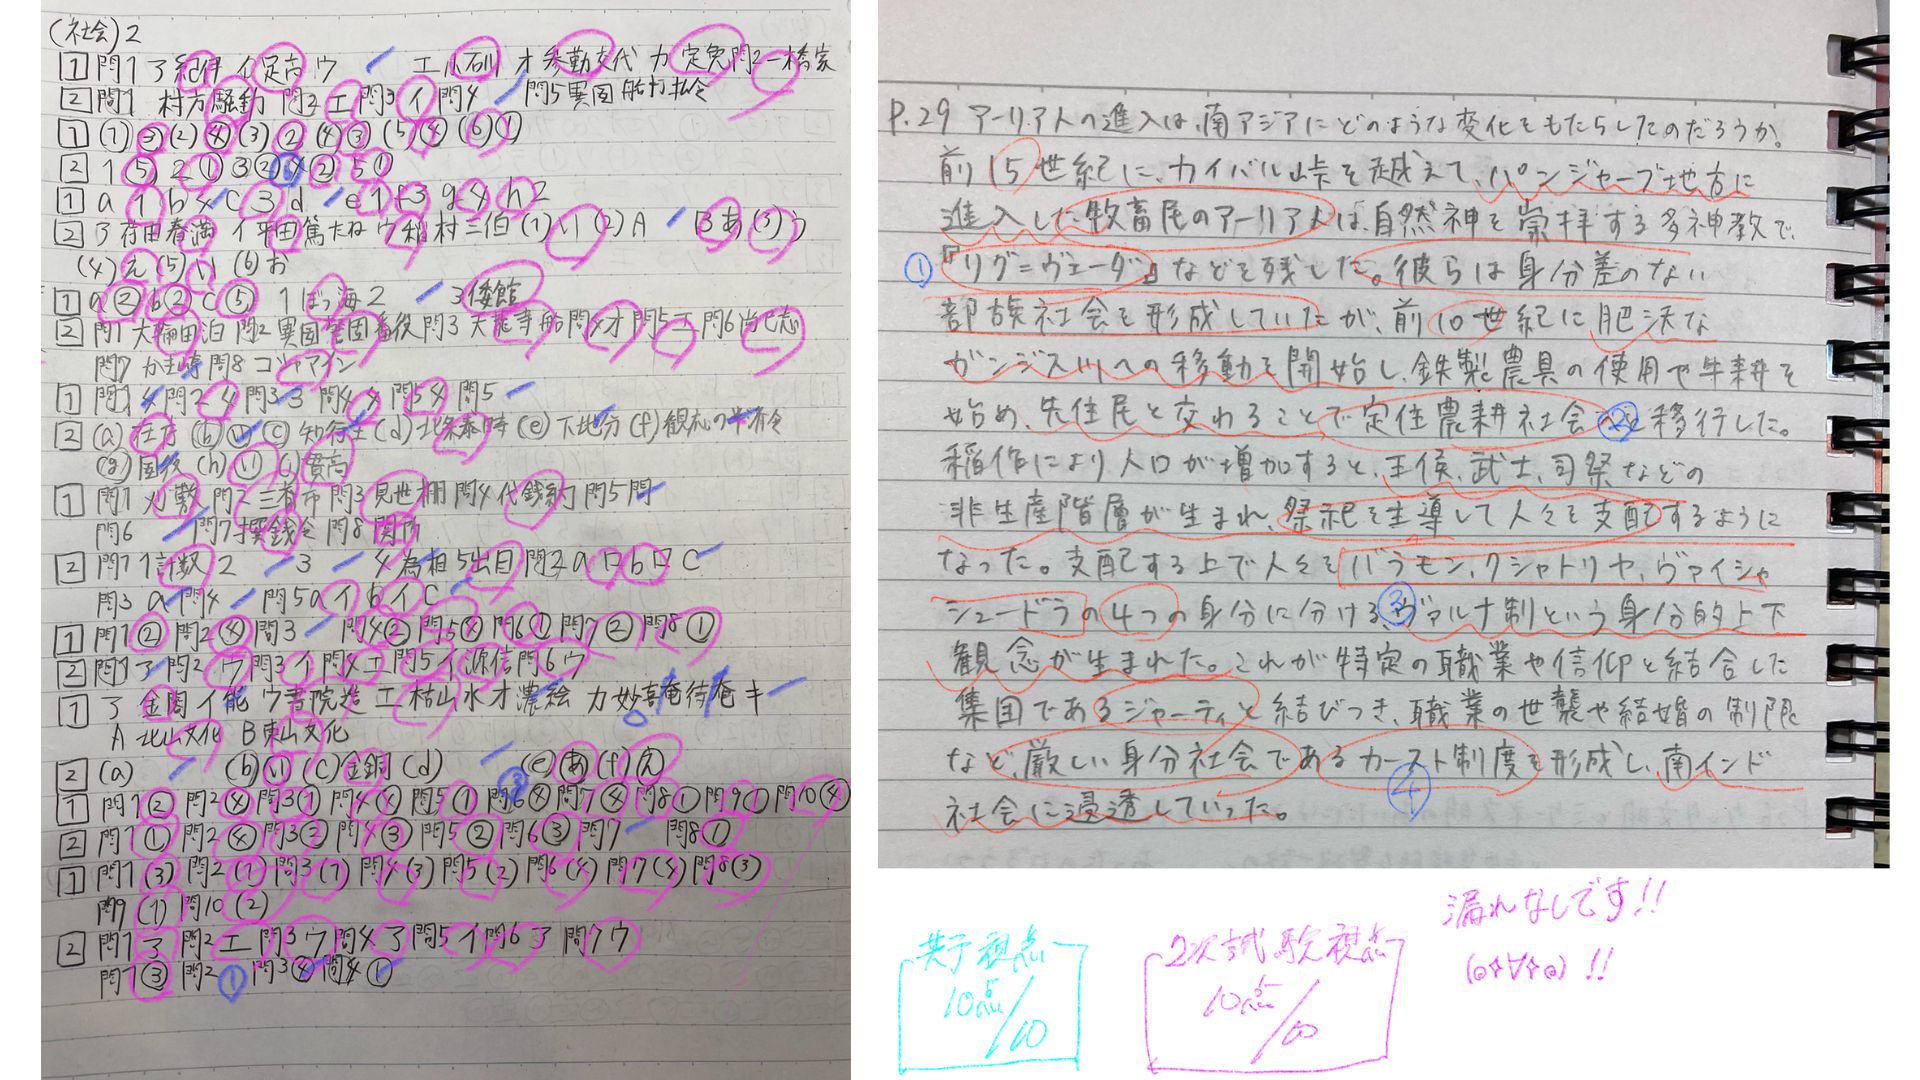 (社会)2
1 問1 ア紀伊 イ足高 ウ エ小石川 オ参勤交代 カ定免 問2一橋家
2 問1 村方騒動 問2エ 問3イ 問4 問5異国船打払令
1 (1)② (2)④ (3)② (4)③ (5)④ (6)①
2 1⑤ 2① 3② 4② 5①
1 a1 b4 c3 d e1 f3 g4 h2
2 ア荷田春満 イ平田篤たね ウ稲村三伯 (1)い (2)A B あ (3)う
(4)え (5)い (6)お
1 a② b② c⑤ 1ぼっ海 2 3倭館
2 問1大輪田泊 問2異国警固番役 問3天龍寺船 問4オ 問5エ 問6尚巴志
問7 問8コシャマイン
1 問1 4 問2 4 問3 3 問4 4 問5 4 問5
2 (a)在庁 (b)い (c)知行主 (d)北条泰時 (e)下地分 (f)観応の半済令
(g)国役 (h)い (i)貫高
1 問1刈敷 問2三斎市 問3見世棚 問4代銭納 問5問
問6 問7撰銭令 問8関所
2 問1 1計数 2 3 4為相 5出目 問2 aロ bロ c
問3 a 問4 問5 aイ bイ c
1 問1② 問2④ 問3 問4② 問5④ 問6① 問7② 問8①
2 問1ア 問2ウ 問3イ 問4エ 問5イ源信 問6ウ
1 ア金閣 イ能 ウ書院造 エ枯山水 オ濃絵 カ妙喜庵待庵 キ
A北山文化 B東山文化
2 (a) (b)い (c)金銅 (d) (e)あ (f)え
1 問1② 問2④ 問3① 問4④ 問5① 問6④ ③ 問7④ 問8① 問9① 問10④
2 問1① 問2④ 問3③ 問4③ 問5② 問6③ 問7 問8①
1 問1(3) 問2(1) 問3(1) 問4(3) 問5(2) 問6(4) 問7(4) 問8(3)
問9(1) 問10(2)
2 問1ア 問2エ 問3ウ 問4ア 問5イ 問6ア 問7ウ
問1③ 問2① 問3④ 問4①
P.29 アーリア人の進入は、南アジアにどのような変化をもたらしたのだろうか。
前15世紀に、カイバル峠を越えて、パンジャーブ地方に
進入した牧畜民のアーリア人は、自然神を崇拝する多神教で、
①『リグ=ヴェーダ』などを残した。彼らは身分差のない
部族社会を形成していたが、前10世紀に肥沃な
ガンジス川への移動を開始し、鉄製農具の使用や牛耕を
始め、先住民と交わることで定住農耕社会②と移行した。
稲作により人口が増加すると、王侯、武士、司祭などの
非生産階層が生まれ、祭祀を主導して人々を支配するように
なった。支配する上で人々をバラモン、クシャトリヤ、ヴァイシャ
シュードラの4つの身分に分ける③ヴァルナ制という身分的上下
観念が生まれた。これが特定の職業や信仰と結合した
集団であるジャーティと結びつき、職業の世襲や結婚の制限
など、厳しい身分社会であるカースト制度を形成し、南インド
④
社会に浸透していった。
共テ視点
10点/10
2次試験視点
10点/10
漏れなしです!!
!!